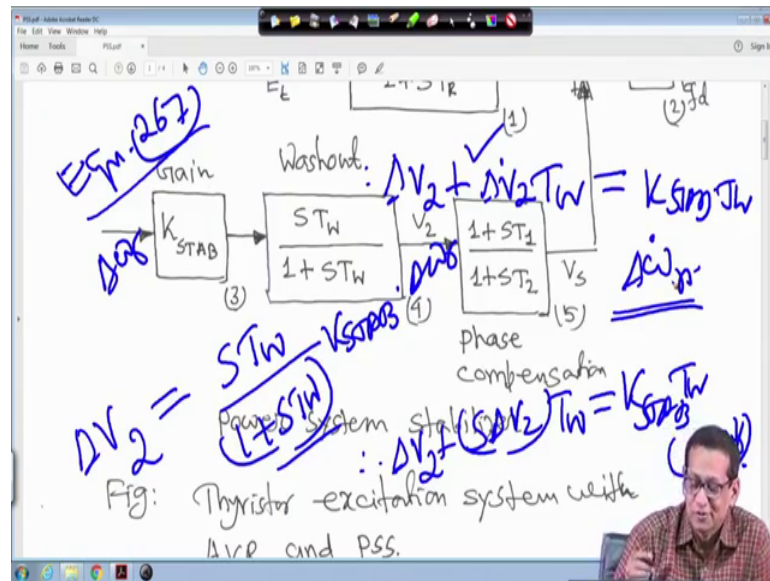 PSS.pdf - Adobe Acrobat Reader DC
File Edit View Window Help
Home Tools PSS.pdf × Sign In
Et
1+STR
(1)
(2)
Eqn.(267)
Gain Washout
∴ ΔV2 + ΔV̇2 TW = KSTAB TW
Δω̇r
Δωr
KSTAB
(3)
STW
1+STW
(4)
V2
1+ST1
1+ST2
(5)
VS
phase
compensation
ΔV2 = STW / (1+STW) KSTAB. Δωr
Power system stabilizer
∴ ΔV2 + (SΔV2) TW = KSTAB TW
Fig: Thyristor excitation system with
AVR and PSS.